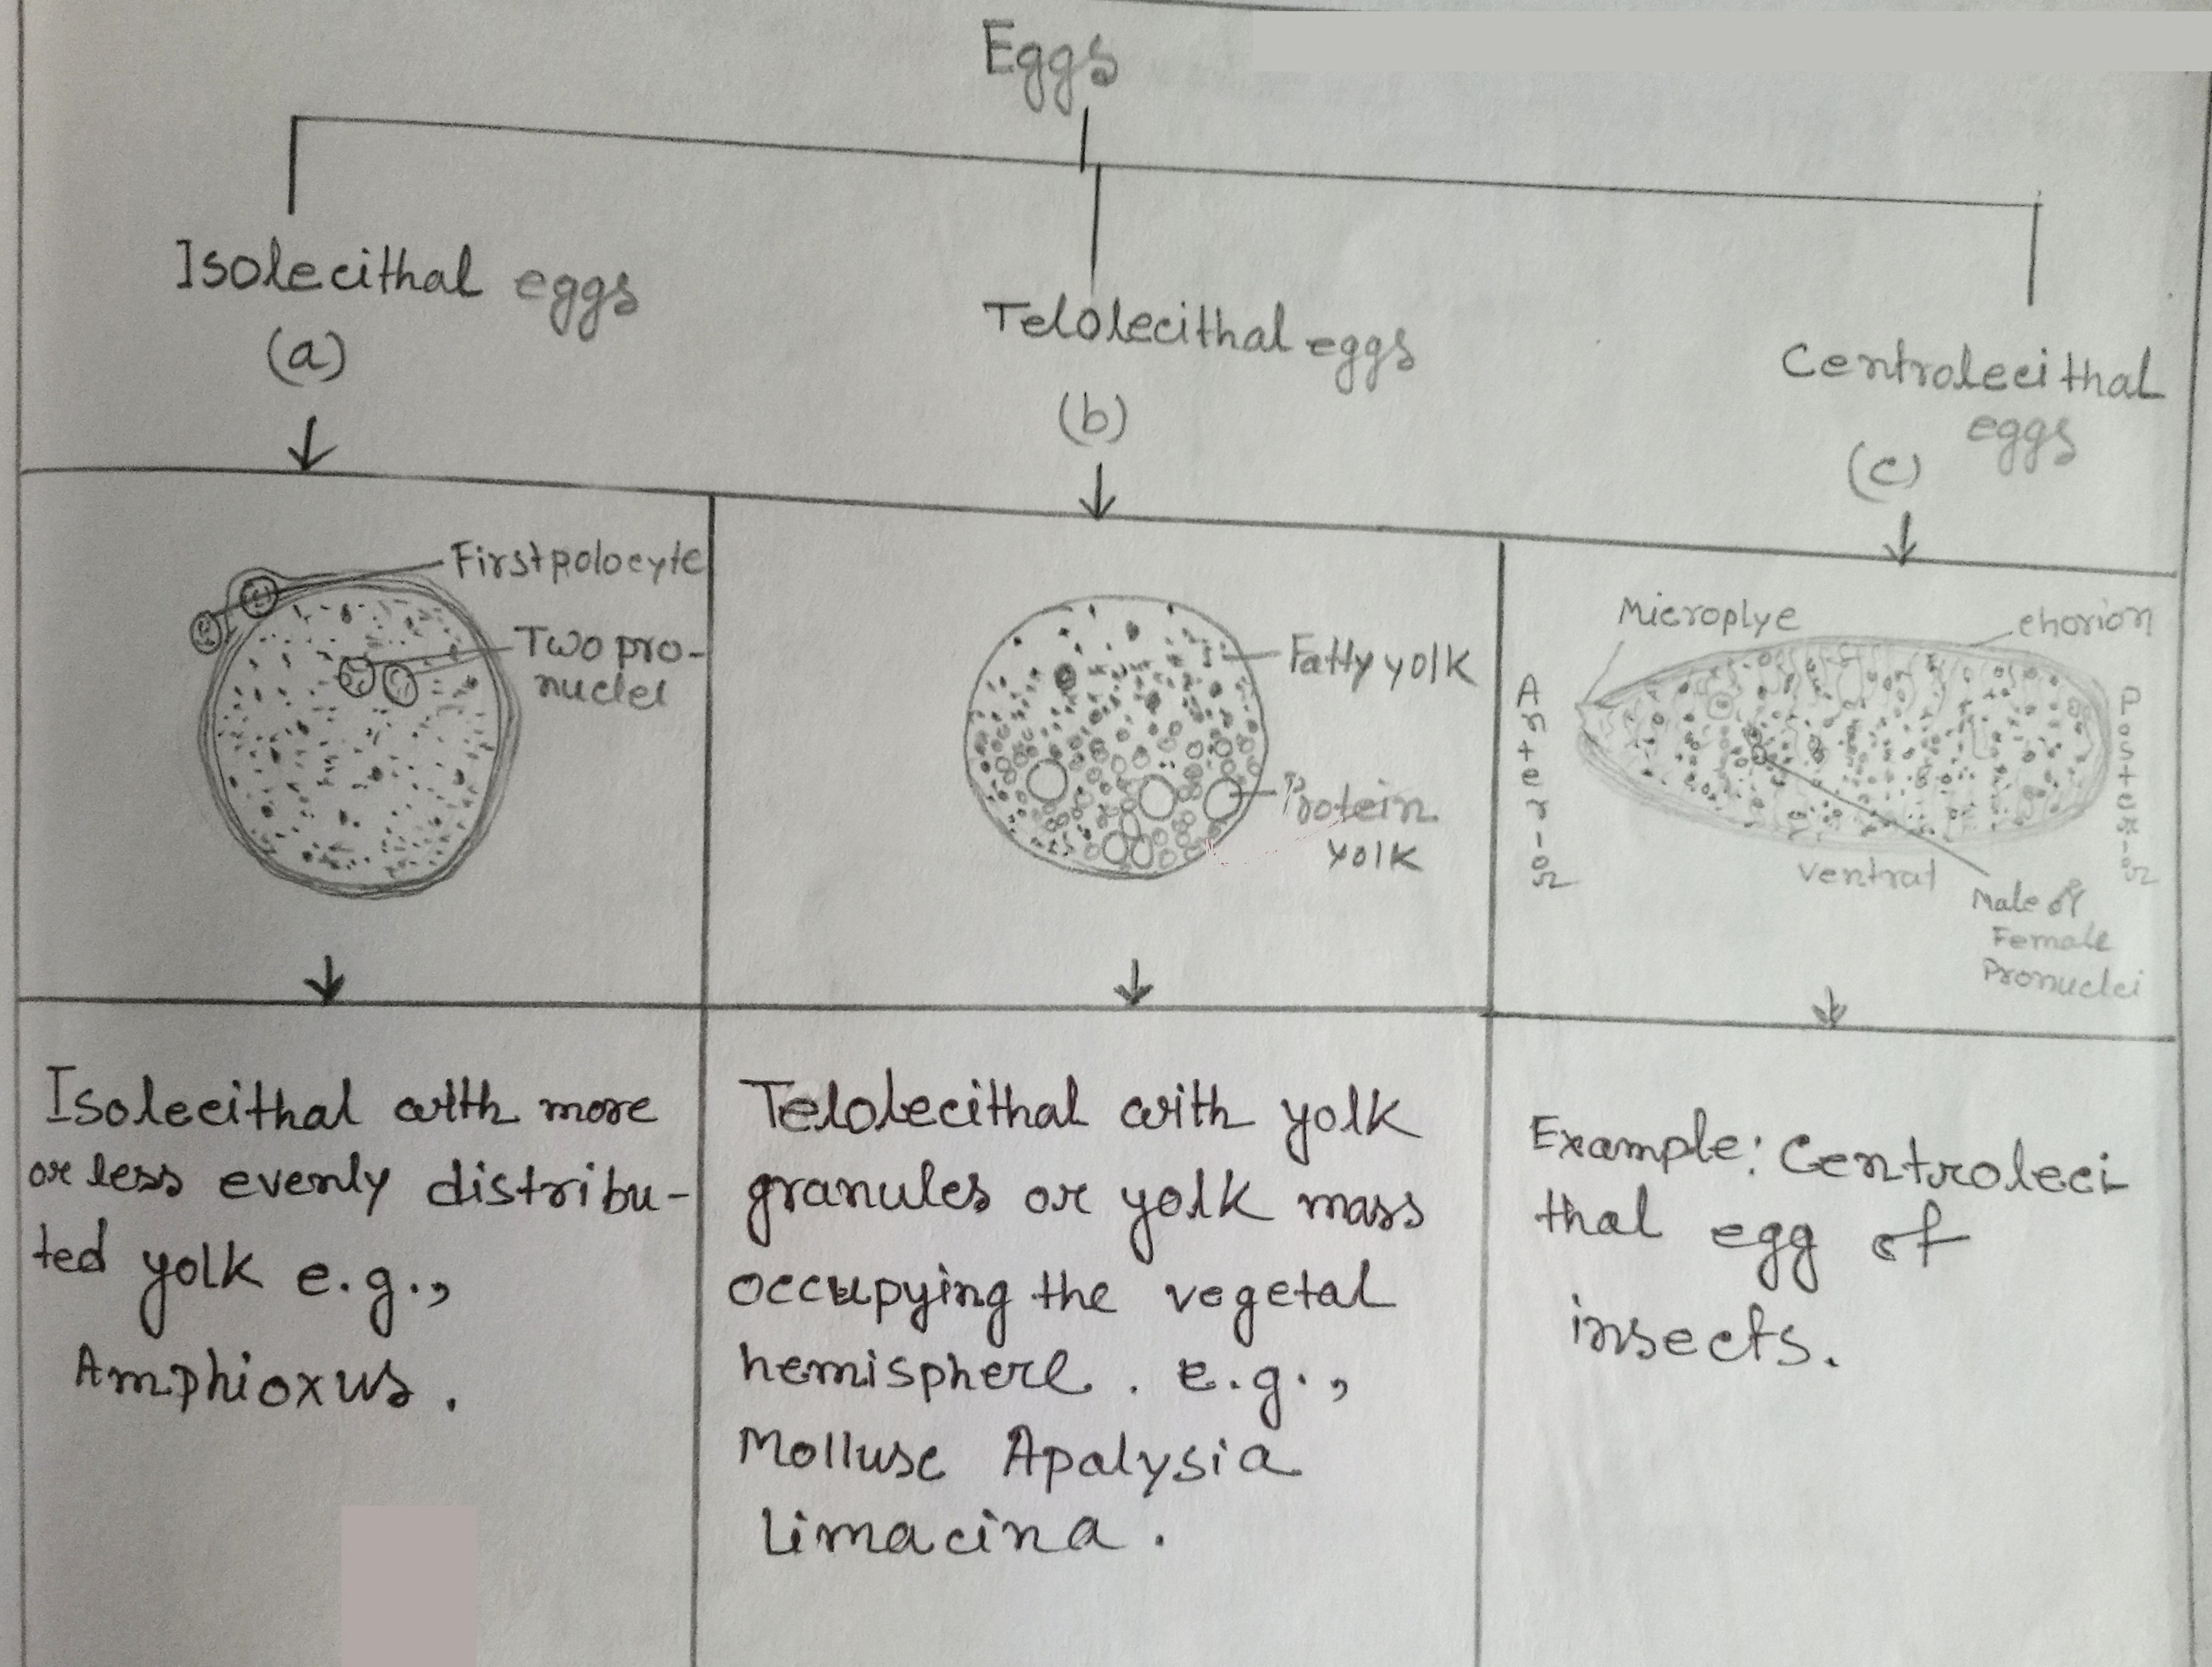 Eggs
Isolecithal eggs
(a)
Telolecithal eggs
(b)
Centrolecithal
eggs
(c)
First polocyte
Two pro-
nuclei
Fatty yolk
Protein
yolk
Microplye
chorion
Anterior
Posterior
ventral
Male of
Female
Pronuclei
Isolecithal with more
or less evenly distribu-
ted yolk e.g.,
Amphioxus.
Telolecithal with yolk
granules or yolk mass
occupying the vegetal
hemisphere. e.g.,
Mollusc Apalysia
Limacina.
Example: Centroleci
thal egg of
insects.